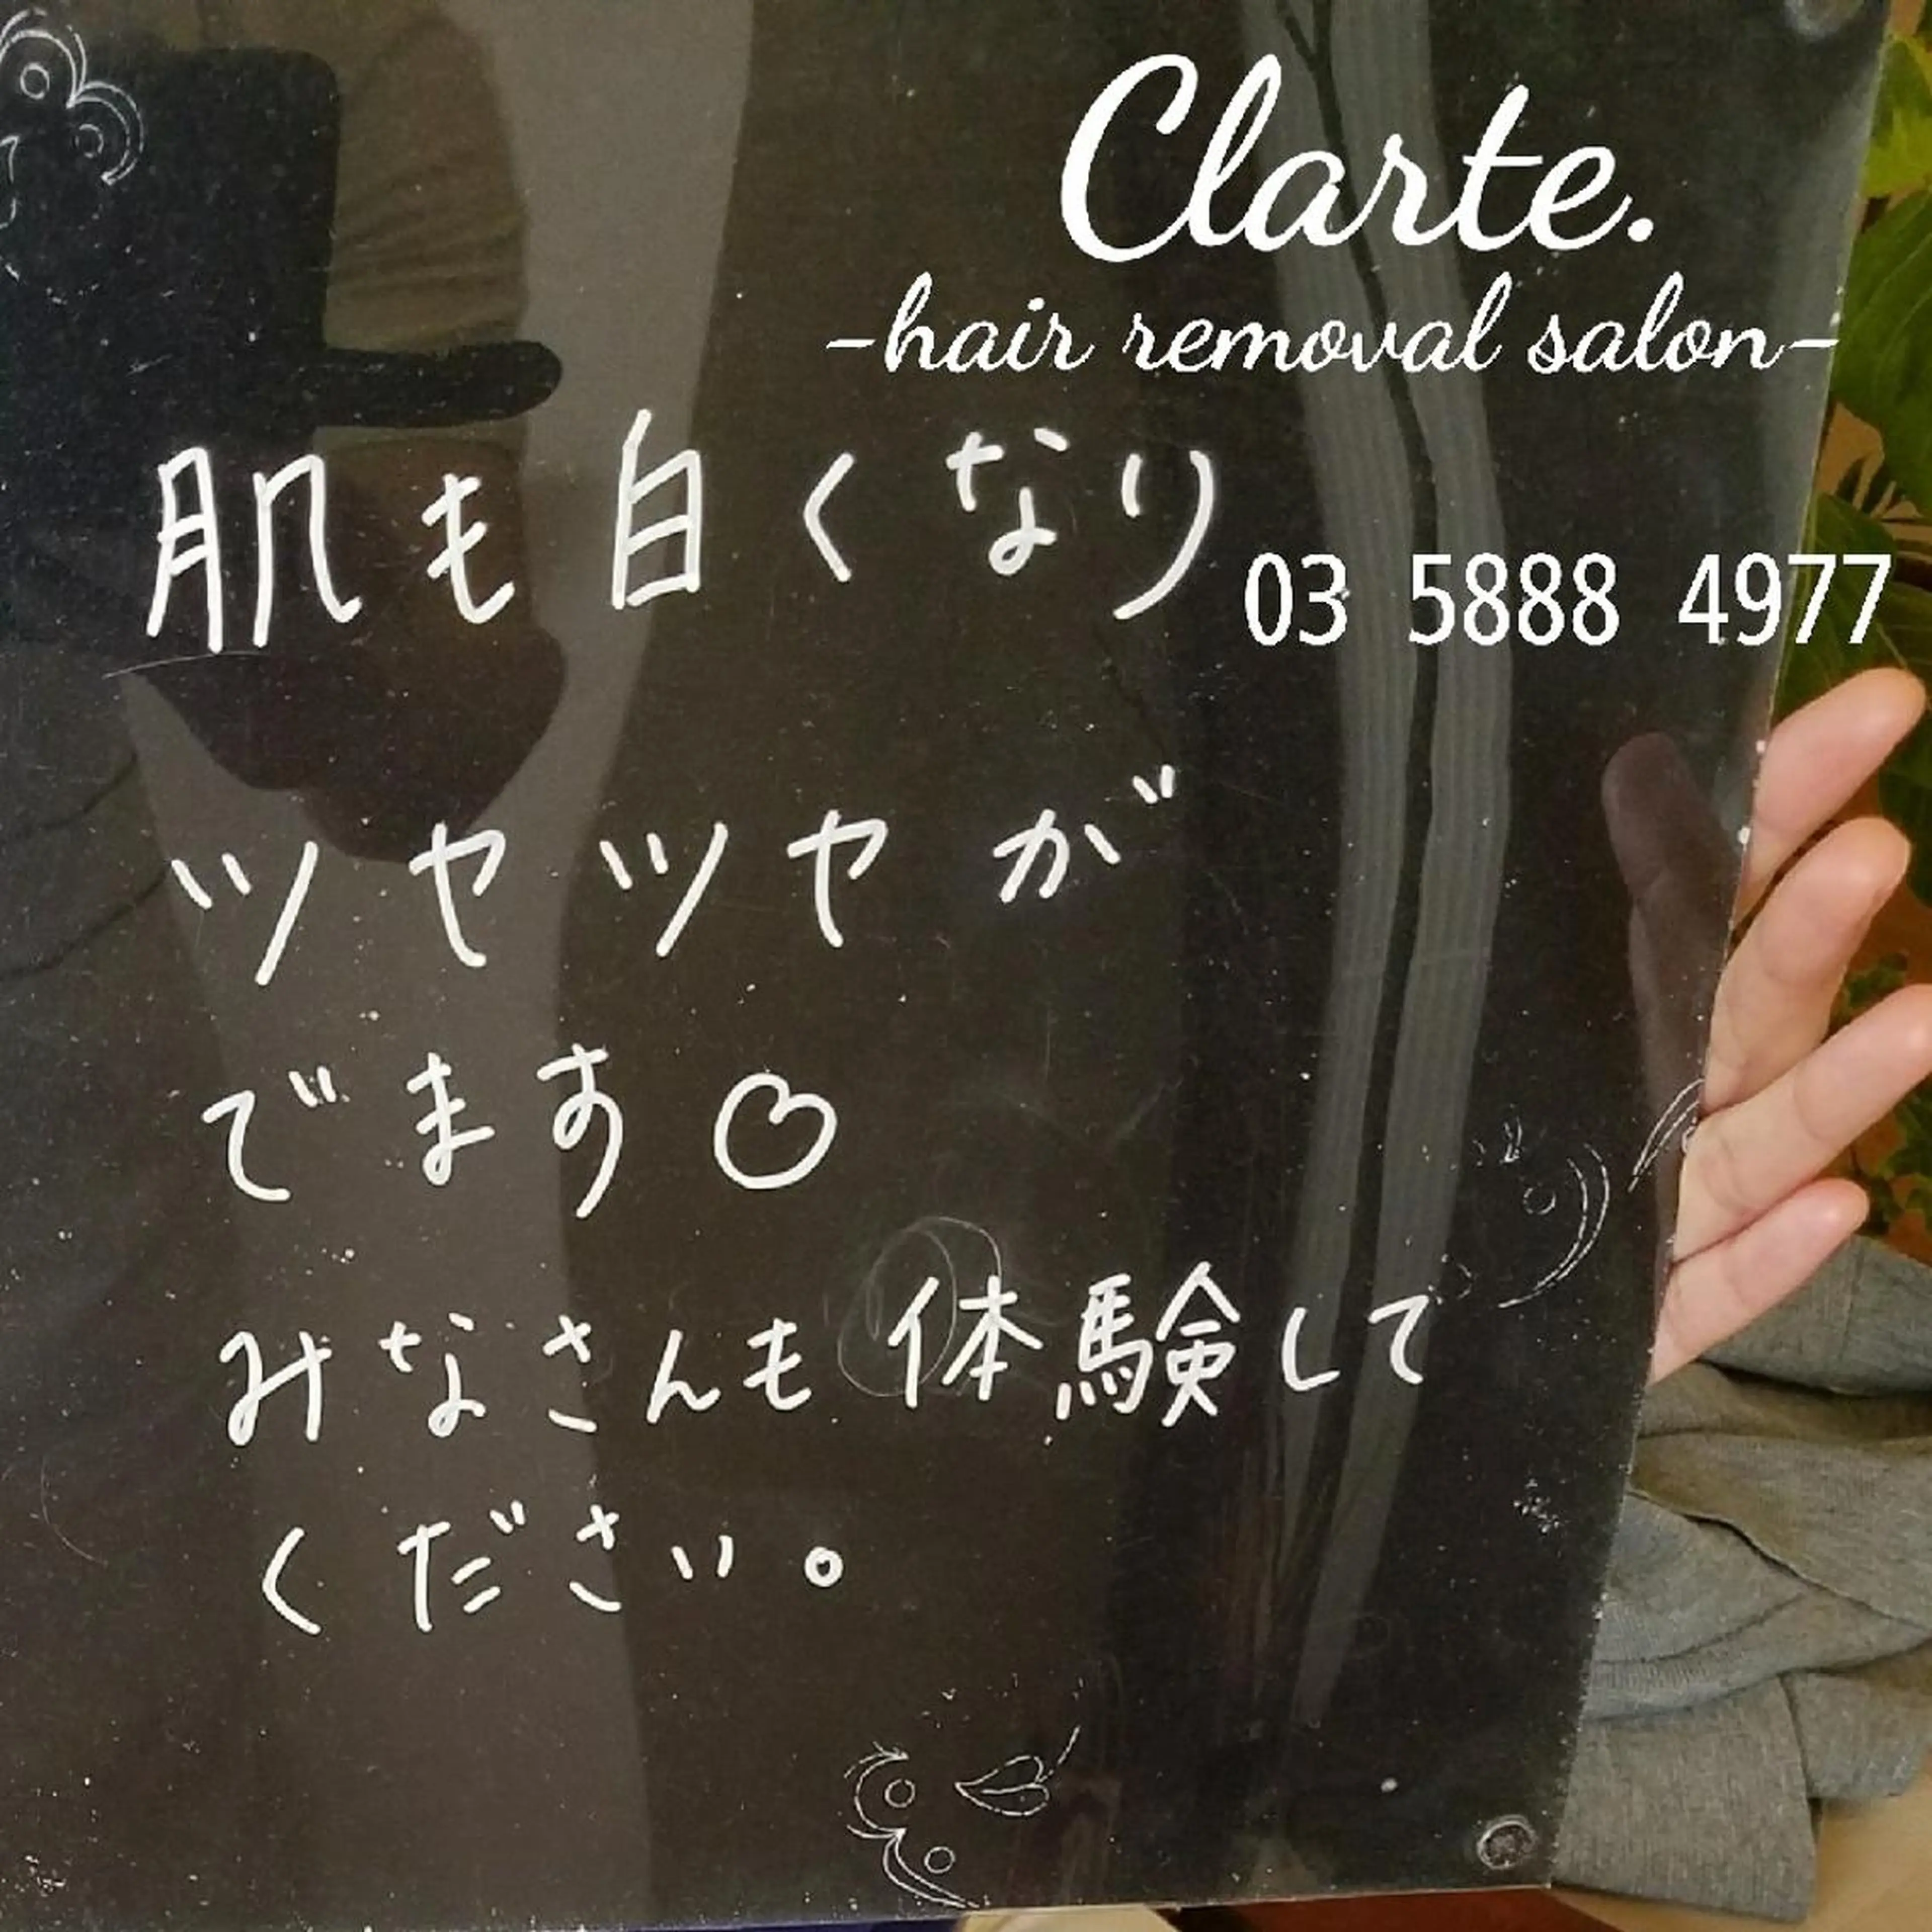 Clarte.
-hair removal salon-
肌も白くなり
03 5888 4977
ツヤツヤが
でます♡
みなさんも体験して
ください。